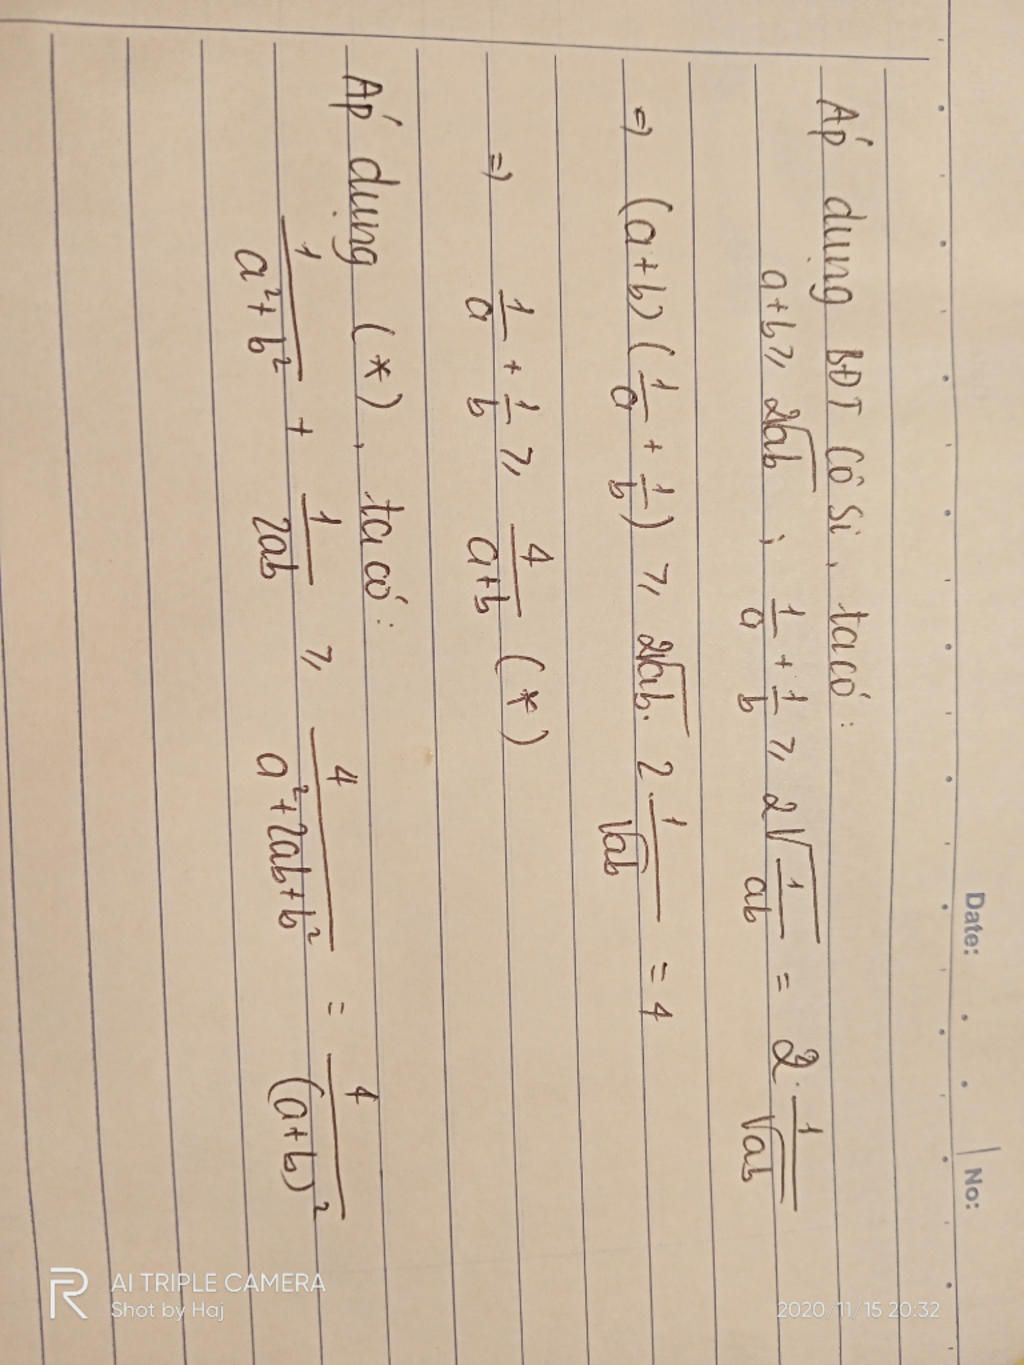 Date: No:
Áp dụng BĐT Cô Si, ta có:
a+b ≥ 2√ab ; 1/a + 1/b ≥ 2√(1/ab) = 2. 1/√ab
⇒ (a+b) (1/a + 1/b) ≥ 2√ab. 2. 1/√ab = 4
⇒ 1/a + 1/b ≥ 4/(a+b) (*)
Áp dụng (*), ta có:
1/(a²+b²) + 1/2ab ≥ 4/(a²+2ab+b²) = 4/(a+b)²
AI TRIPLE CAMERA
Shot by Haj
2020/11/15 20:32